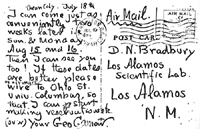 Iowa City - July 18th
I can come just as
conveniently two
weeks later i.e.
Sun. & Monday
Aug 15 and 16.
Then I can see you
too! If these dates
are better please
wire to Ohio St.
Univ. Columbus, so
that I can start
making reservations
(OVER) Your Geo. Gamow
Air Mail.
POST CARD
D. N. Bradbury
Los Alamos
Scientific Lab.
Los Alamos
N. M.